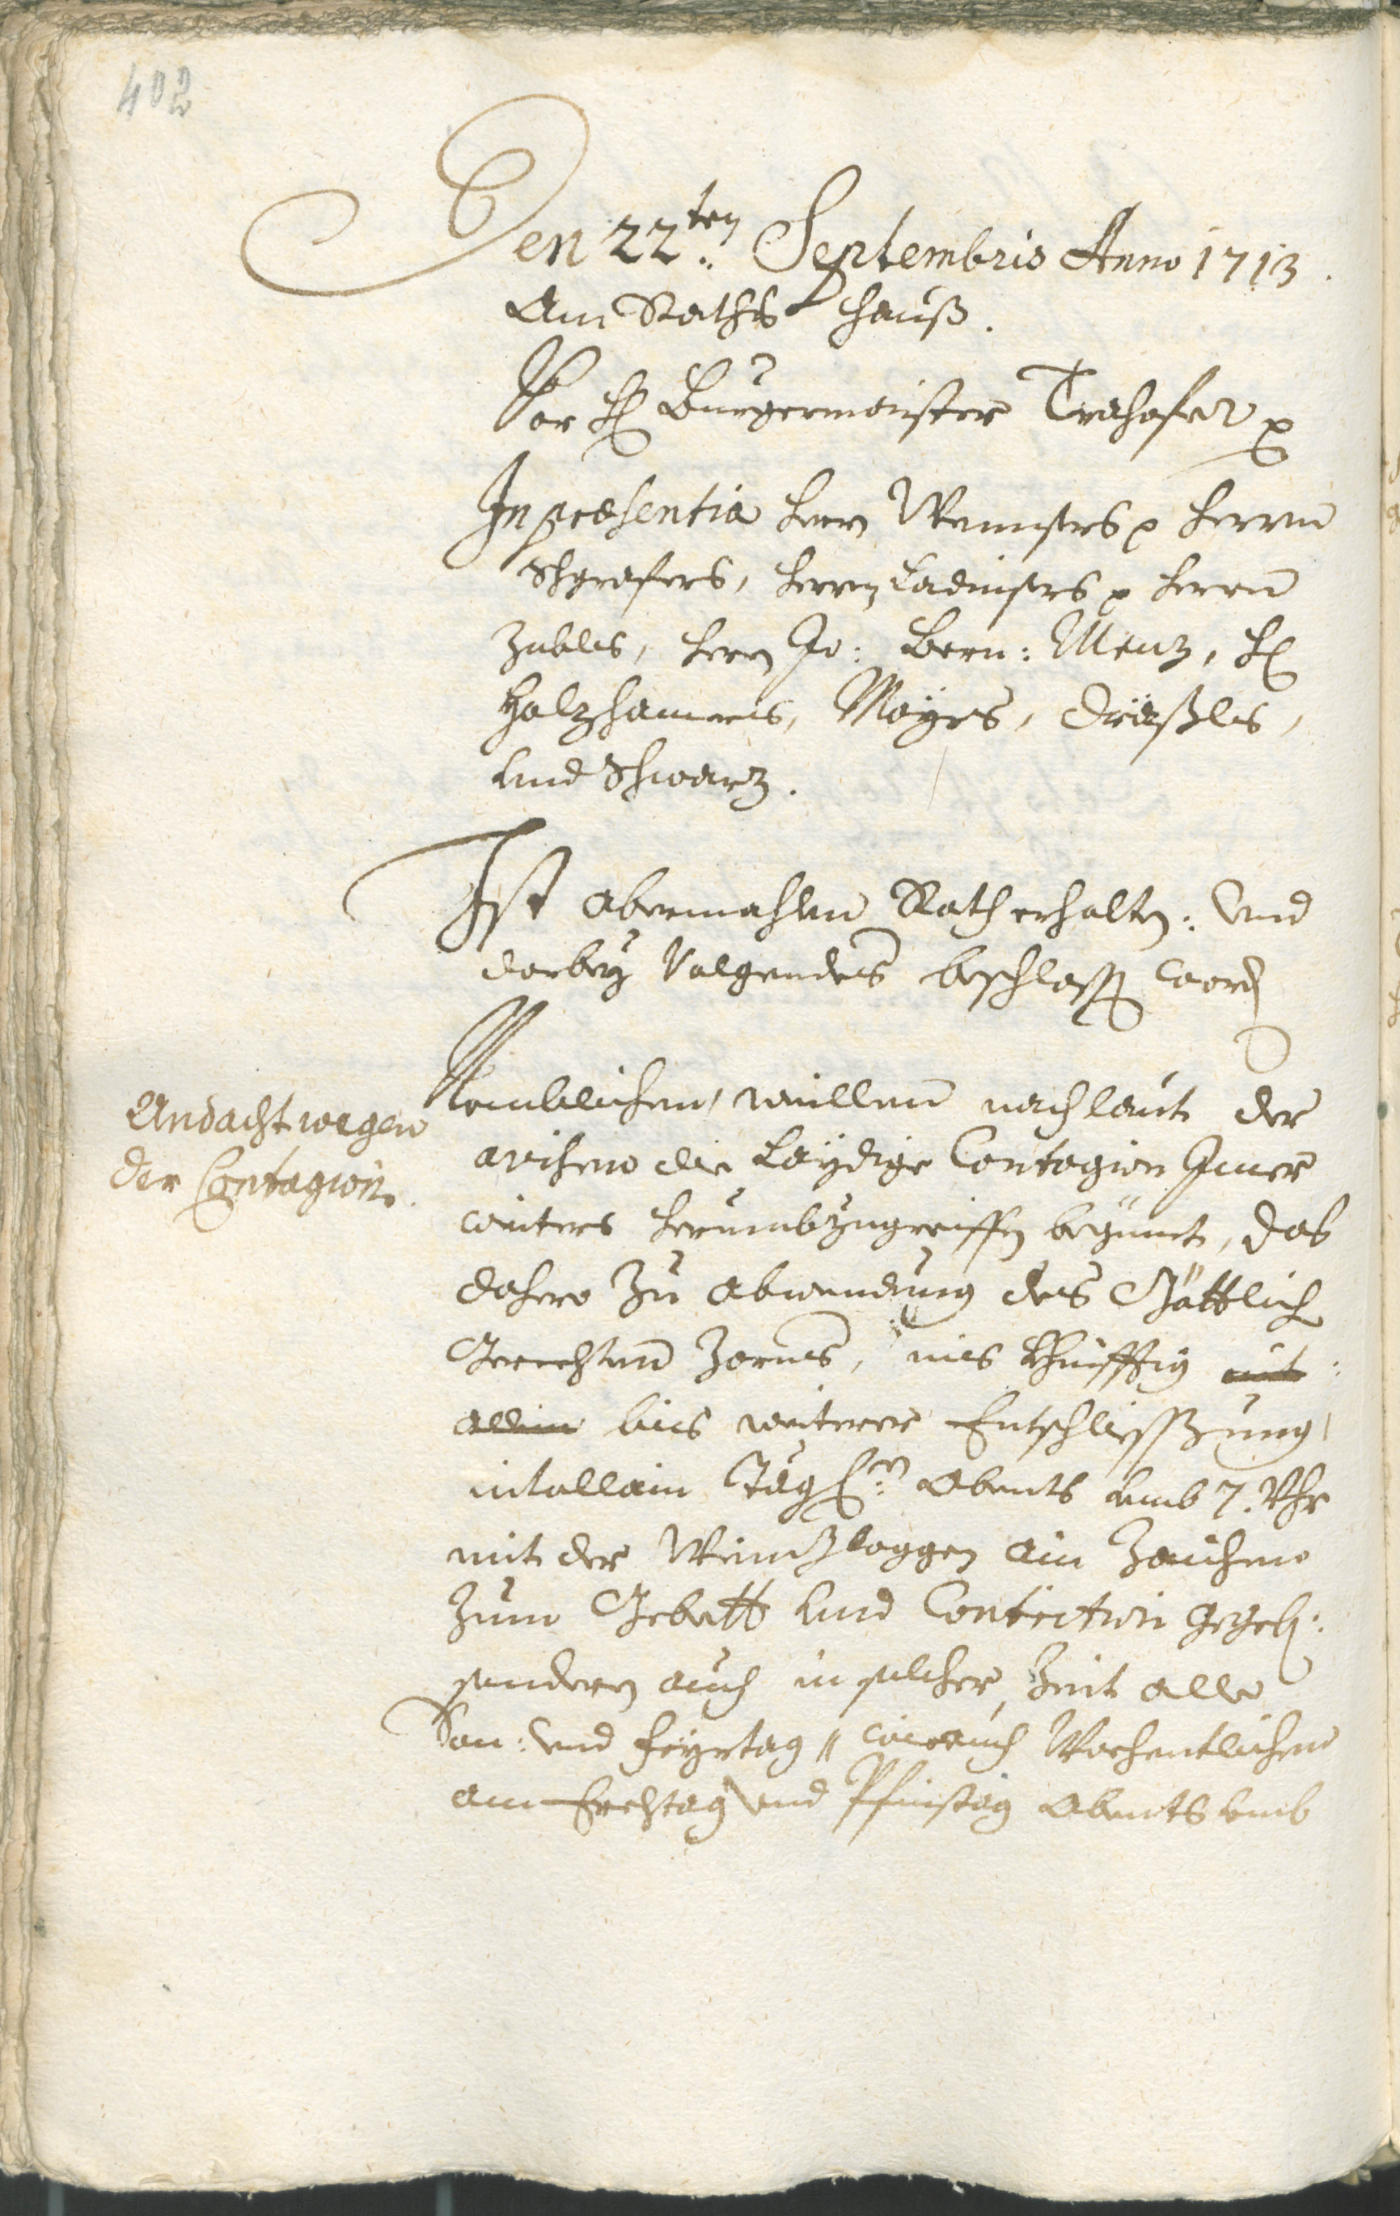 402
Den 22.ten Septembris Anno 1713.
Am Raths hauß.
Vor H Burgermaister Trahofer p
In præsentia herrn Wennsers p herrn
herrn Ladinsers p herrn
Zublls, herrn Jo: Bern: Menz, H
Holzhamers, Mayrs,
und Schwarz.
Ist abermahlen Rath erhalten: und
darbey Volgendes beschlossen word
Andacht wegen
der Contagion.
Nemblichen, weillen nach laut der
die Laydige Contagion Imer
weiters herumbzugreiffen begünnt, das
dahero zu abwendung des Göttlich
Gerechten Zorns, nit khünfftig mit
allein bis weiterer Entschliessung,
nit allain Tägl: Abents umb 7. Uhr
mit der ain Zaichen
zum Gebett und Contrition gegeb:
sondern auch in solcher Zeit alle
Son: und Feyrtag // wie auch Wochentlichen
am Erchtag und Pfinstag Abents umb